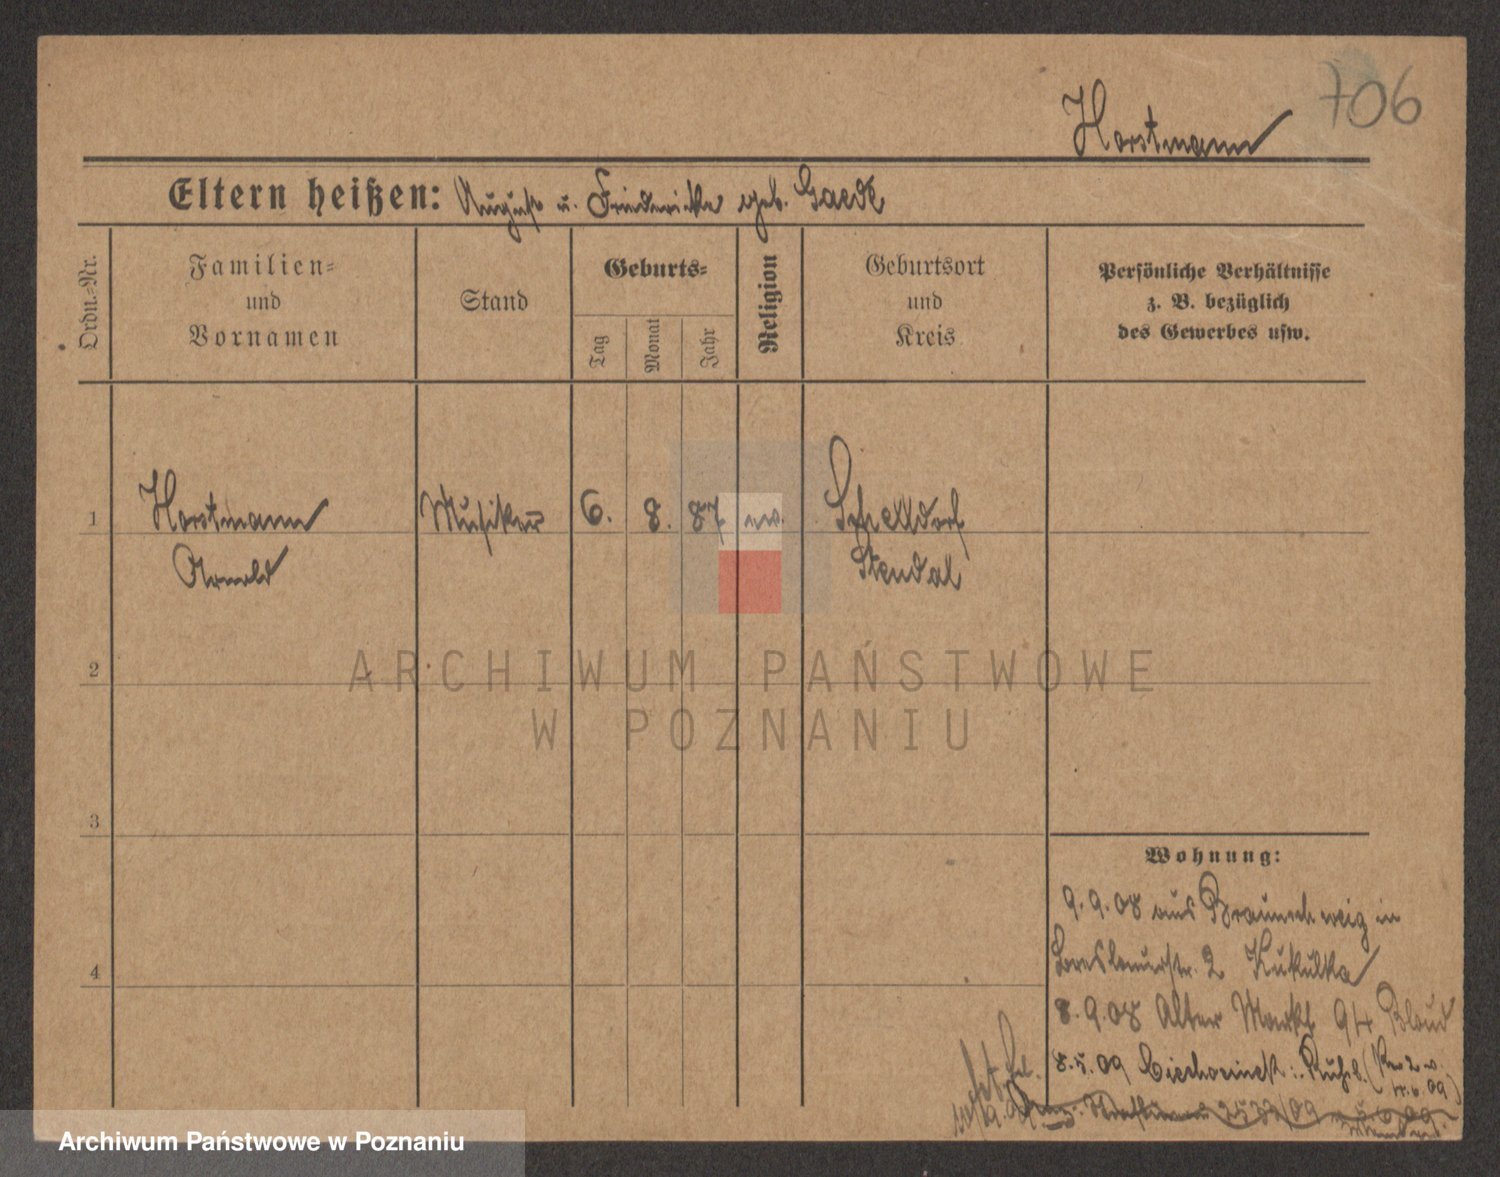 706
Horstmann
Eltern heißen: August u. Friedericke geb. Gaede
Ordn.-Nr.
Familien-
und
Vornamen
Stand
Geburts-
Tag
Monat
Jahr
Religion
Geburtsort
und
Kreis
Persönliche Verhältnisse
z. B. bezüglich
des Gewerbes usw.
1 Horstmann Musiker 6. 8. 87 ev. Schelldorf
Arnold Stendal
2
ARCHIWUM PAŃSTWOWE
W POZNANIU
3
Wohnung:
9.9.08 aus Braunschweig in
Breslauerstr. 2 Kukulka
4
8.9.08 Alter Markt 94 Blaud
8.5.09 Ciechocinek: Russl.
2532/09
Archiwum Państwowe w Poznaniu